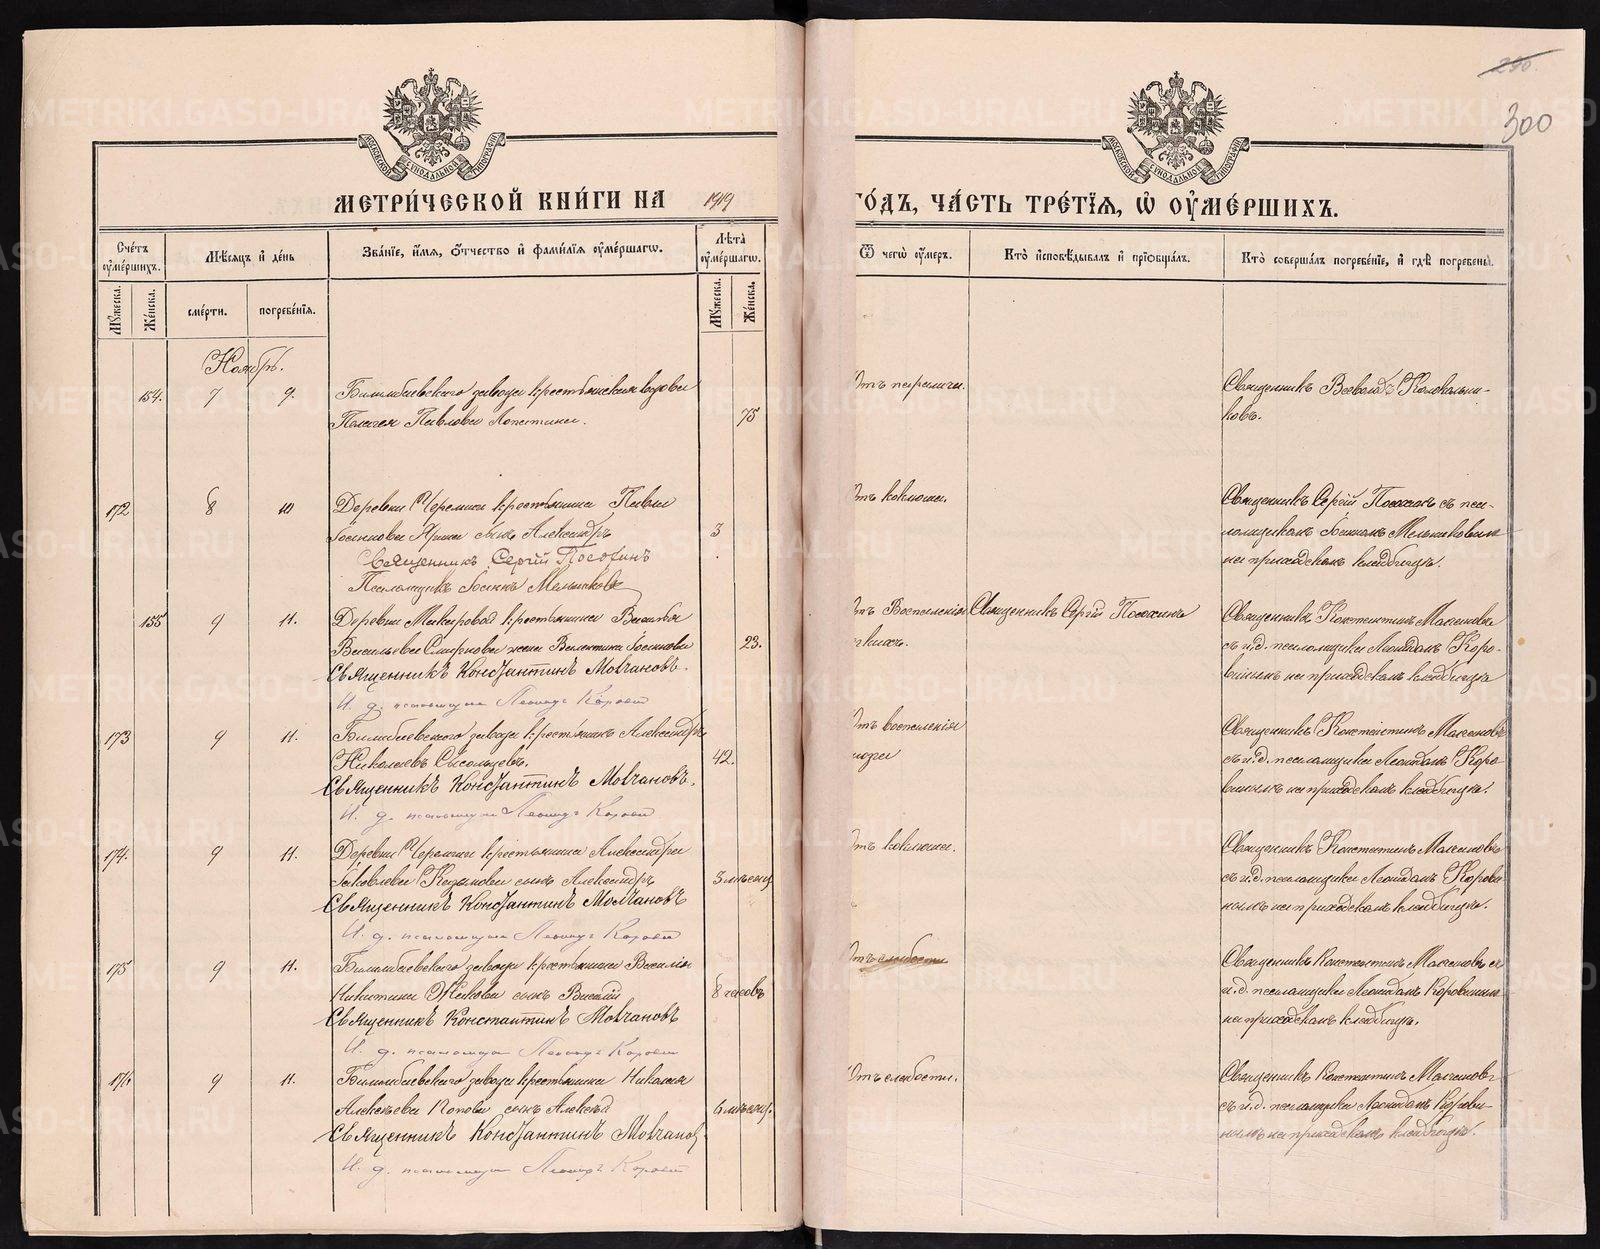 290.
300
МОСКОВСКОЙ СУНОДАЛЬНОЙ ТИПОГРАФІИ
МОСКОВСКОЙ СУНОДАЛЬНОЙ ТИПОГРАФІИ
МЕТРИ́ЧЕСКОЙ КНИ́ГИ НА 1919
ГО́ДЪ, ЧА́СТЬ ТРЕ́ТІѦ, Ѡ ОУМЕ́РШИХЪ.
Сче́тъ оуме́ршихъ.
Мѣсяцъ и де́нь
Зва́ніе, и́мя, о́тчество и фами́лія оуме́ршагѡ.
Лѣ́та оуме́ршагѡ.
Ѿ чегѡ̀ оу́меръ.
Кто̀ исповѣ́дывалъ и пріобща́лъ.
Кто̀ соверша́лъ погребе́ніе, и гдѣ̀ погребены̀.
Мꙋ́жеска.
Же́нска.
сме́рти.
погребе́нія.
Мꙋ́жеска.
Же́нска.
Ноябрь.
154. 7 9. Билимбаевскаго завода крестьянская вдова
Пелагея Павлова Лопатина. 75
Отъ паралича.
Священникъ Всеволодъ Колокольни-
ковъ.
172 8 10 Деревни Черемши крестьянина Павла
сынъ Александръ 3
Священникъ Сергій Посохинъ
Псаломщикъ Іоаннъ Мельниковъ
Отъ коклюша.
Священникъ Сергій Посохинъ съ пса-
ломщикомъ Іоанномъ Мельниковымъ
на приходскомъ кладбищѣ.
155 9 11. Деревни Макаровой крестьянина Василья
Васильева Смирнова жена Валентина Іоаннова 23.
Священникъ Константинъ Молчановъ.
И. д. псаломщика Леонидъ Коровин
Отъ Воспаленія
Священникъ Сергій Посохинъ
Священникъ Константинъ Молчановъ
съ и.д. псаломщика Леонидомъ Коро-
винымъ на приходскомъ кладбищѣ
173 9 11. Билимбаевскаго завода крестьянинъ Александръ
Николаевъ Сысольцевъ. 42.
Священникъ Константинъ Молчановъ.
И. д. псаломщика Леонидъ Коровин
Отъ воспаленія
Священникъ Константинъ Молчановъ
съ и.д. псаломщика Леонидомъ Коро-
винымъ на приходскомъ кладбищѣ.
174. 9 11. Деревни Черемши крестьянина Александра
Іаковлева сынъ Александръ 3 мѣсяц.
Священникъ Константинъ Молчановъ
И. д. псаломщика Леонидъ Коровин
Отъ коклюша.
Священникъ Константинъ Молчановъ
съ и.д. псаломщика Леонидомъ Корови-
нымъ на приходскомъ кладбищѣ.
175 9 11. Билимбаевскаго завода крестьянина Василія
Никитина сынъ Василій 8 часовъ
Священникъ Константинъ Молчановъ
И. д. псаломщика Леонидъ Коровин
Отъ слабости
Священникъ Константинъ Молчановъ съ
и.д. псаломщика Леонидомъ Коровинымъ
на приходскомъ кладбищѣ.
176 9 11. Билимбаевскаго завода крестьянина Николая
Алексѣева Попова сынъ Алексѣй 6 мѣсяц.
Священникъ Константинъ Молчановъ
И. д. псаломщика Леонидъ Коровин
Отъ слабости.
Священникъ Константинъ Молчановъ
съ и.д. псаломщика Леонидомъ Корови-
нымъ на приходскомъ кладбищѣ.
METRIKI.GASO-URAL.RU